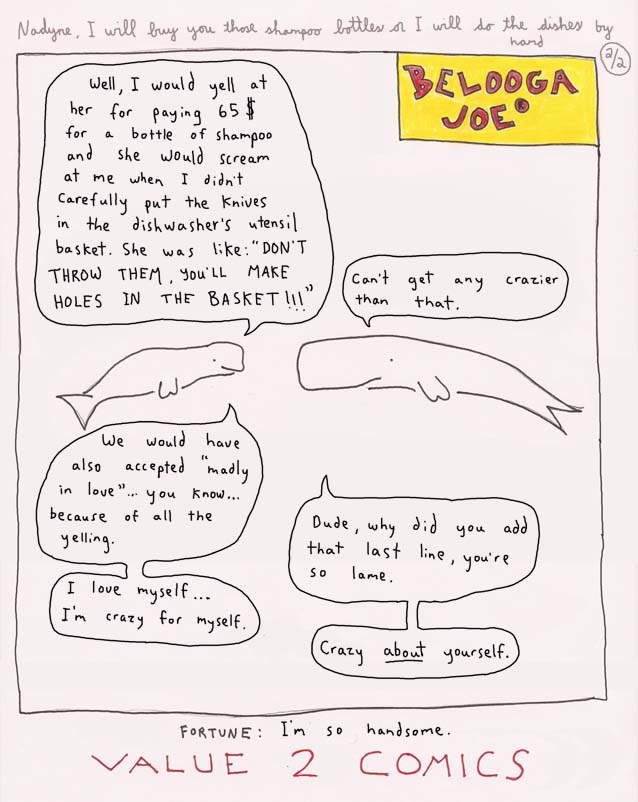 Nadyne, I will buy you those shampoo bottles or I will do the dishes by
hand
2/2
BELOOGA
JOE®
Well, I would yell at
her for paying 65 $
for a bottle of shampoo
and she would scream
at me when I didn't
carefully put the knives
in the dishwasher's utensil
basket. She was like: "DON'T
THROW THEM, YOU'LL MAKE
HOLES IN THE BASKET!!!"
Can't get any crazier
than that.
We would have
also accepted "madly
in love"... you know...
because of all the
yelling.
I love myself...
I'm crazy for myself.
Dude, why did you add
that last line, you're
so lame.
Crazy about yourself.
FORTUNE: I'm so handsome.
VALUE 2 COMICS